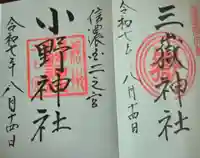 信濃国二之宮
小野神社
令和七年
八月十四日
令和七年
三嶽神社
八月十四日